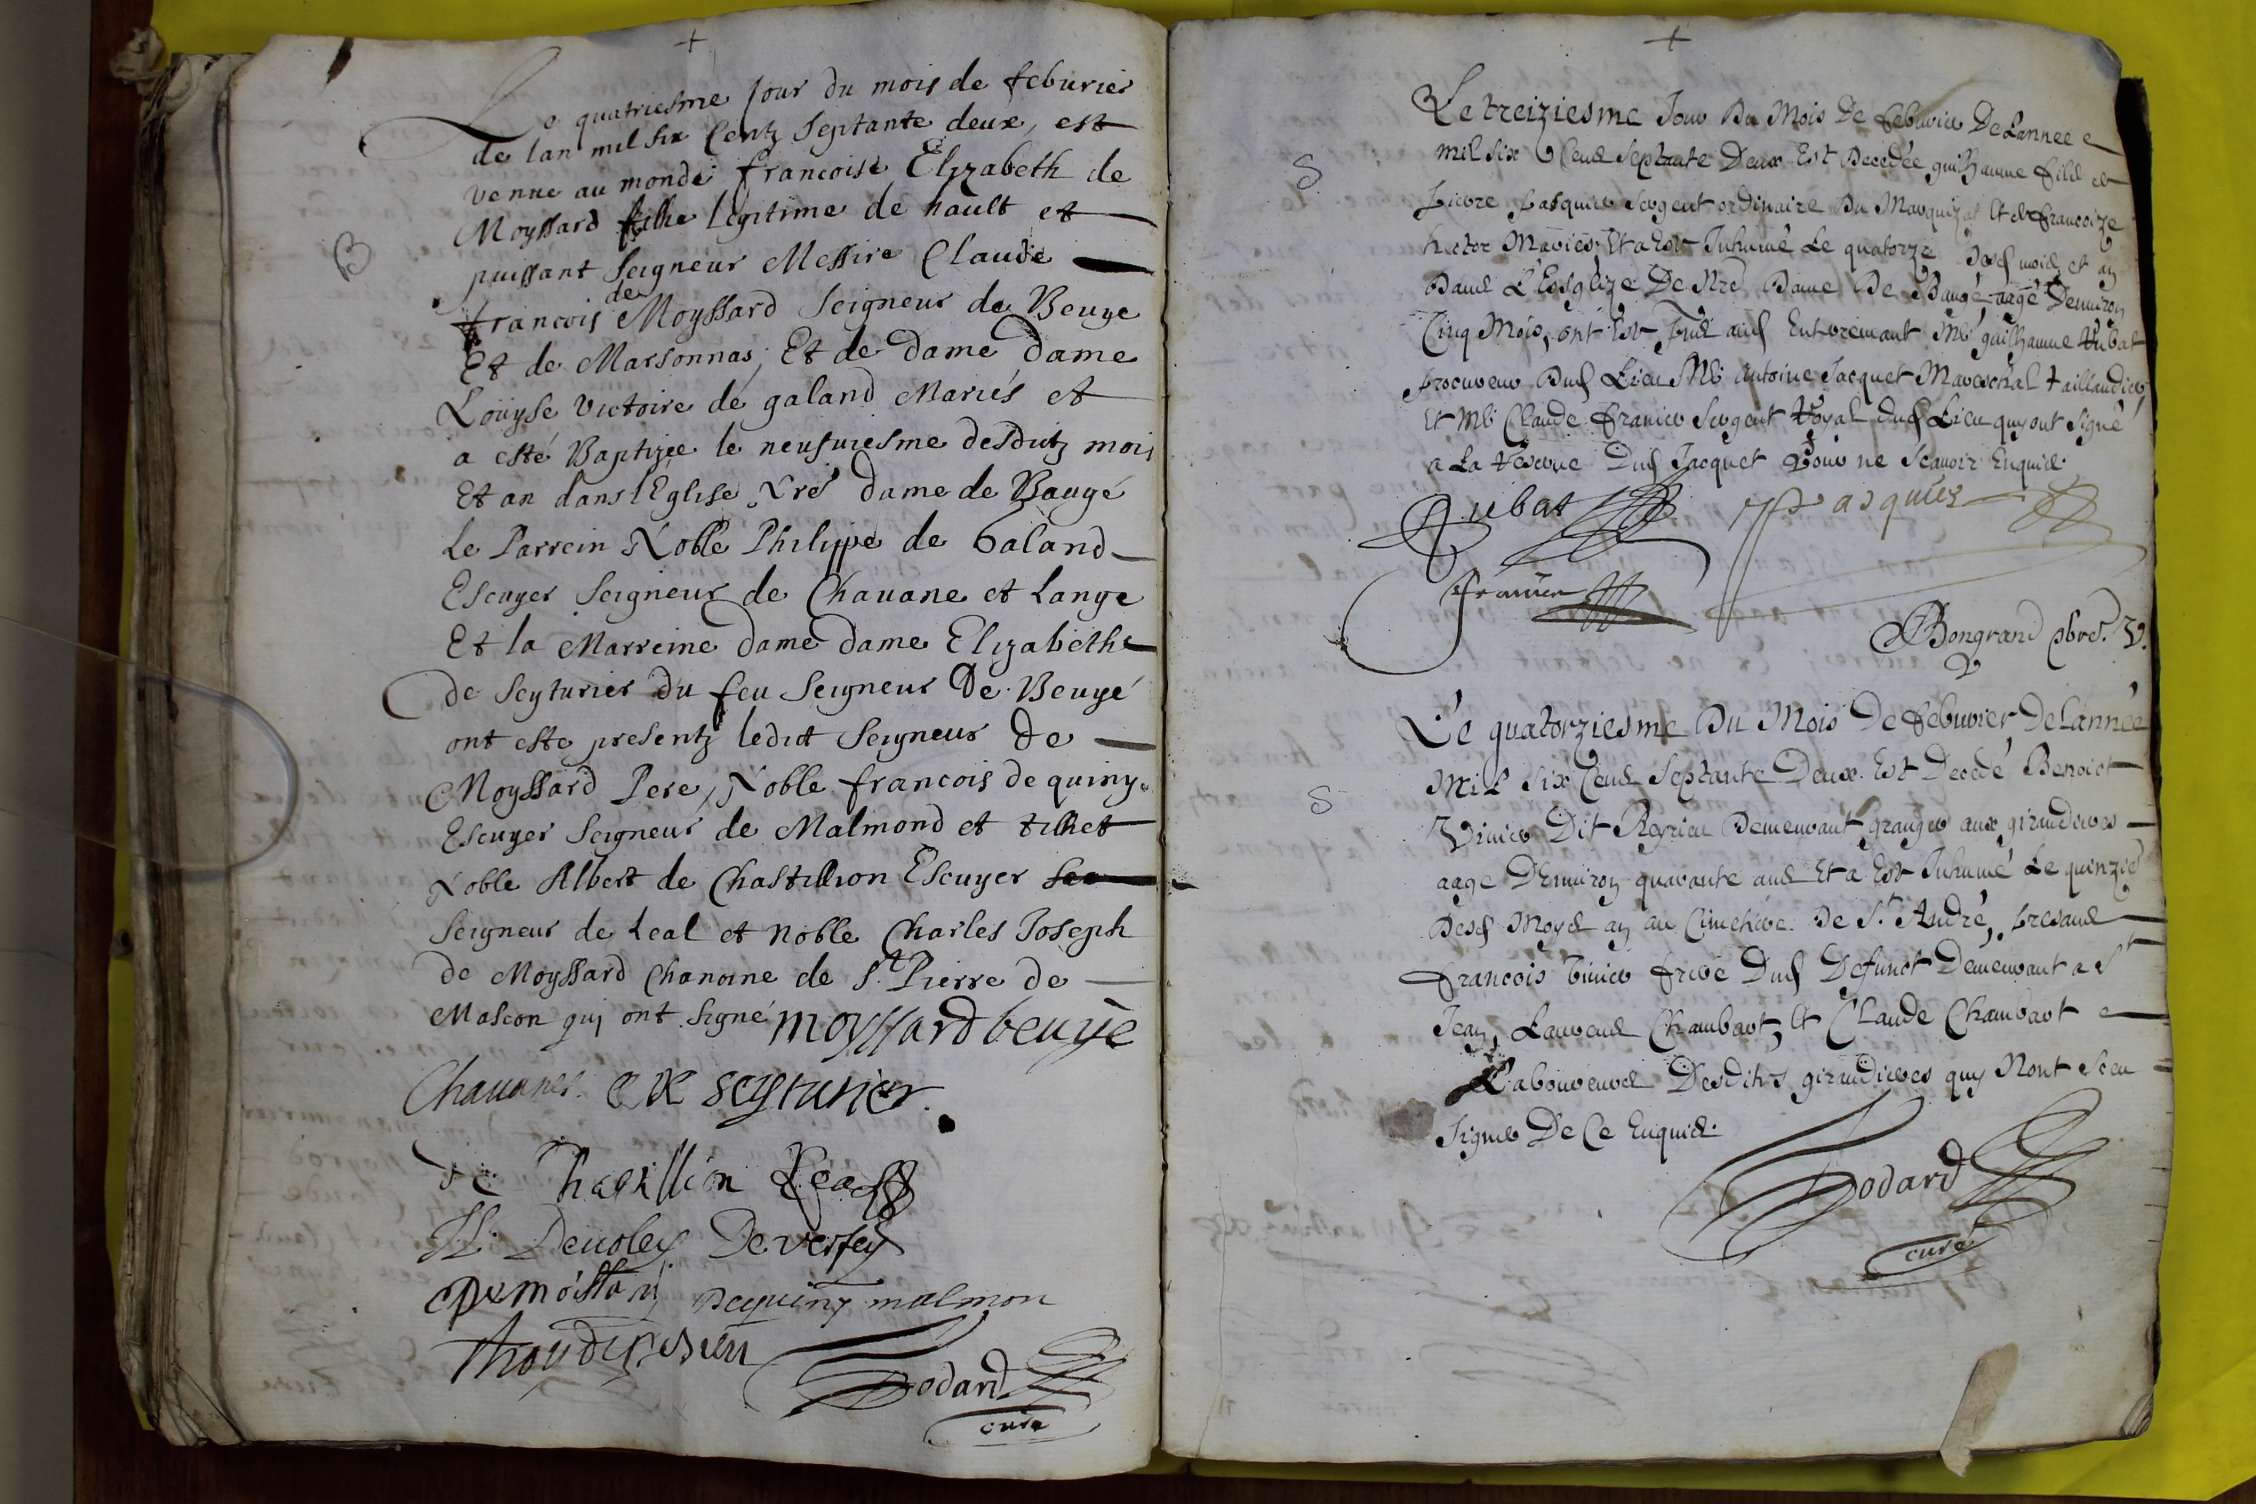 +
Le quatriesme Jour du mois de feburier
de lan mil six Centz septante deux, est
venue au monde francoise Elizabeth de
Moyssard filhe legitime de hault et
B
puissant Seigneur Messire Claude
francois de Moyssard Seigneur de Beuye
Et de Marsonnas, Et de dame dame
Louyse Victoire de galand Mariés et
a esté Baptizée le neufuiesme desditz mois
Et an dans l'Eglise Nre dame de Baugé
Le Parrein Noble Philippe de Galand
Escuyer Seigneur de Chauane et Lange
Et la Marreine dame dame Elizabethe
de Seyturier du feu Seigneur De Beuyé
ont esté presentz ledict Seigneur De
Moyssard Pere, Noble francois de quiny
Escuyer Seigneur de Malmond et tilhet
Noble Albert de Chastillion Escuyer
Seigneur de Leal et Noble Charles Joseph
de Moyssard Chanoine de St. Pierre de
Mascon qui ont signé moyssard beuyé
Chauanes. de seyturier.
de Chastillion Leal
De verfey
Dequiny malmon
Dodard
curé
+
Le treiziesme Jour Du Mois De febvrier De Lannee
mil six Cens Septante Deux Est Decedée guilhaume filz de
S
Pierre Pasquier Sergent ordinaire Du Marquizat Et de francoize
Mariés, Et a Esté Inhumé Le quatorze Desd mois et an
Dans L'Esglize De Nre Dame De Baugé aagé D'enuiron
Cinq Mois, ont Esté aud Enterremant Me guilhaume Rubat
Procureur Dud Lieu Me Antoine Jacquet Mareschal taillandier
Et Me Claude franier Sergent Royal dud Lieu quy ont Signé
a La reserue Dud Jacquet Pour ne Scauoir Enquis.
Rubat Pasquier
franier
Bongrand pbre. V.
Le quatorziesme Du Mois De febuvier De Lannée
Mil Six Cens Septante Deux Est Decedé Benoict
S
Dit Reyrieu Demeurant granger aux girandieres
aage D'Enuiron quarante ans Et a Esté Inhumé Le quinzie
Desd Moys an au Cimetiere De St. André, Presans
francois frere Dud Defunct Demeurant a St
Jean, Laurens Chambart, Et Claude Chambart
Laboureurs Desdites girandieres quy Nont Sceu
Signer De Ce Enquis.
Dodard
curé